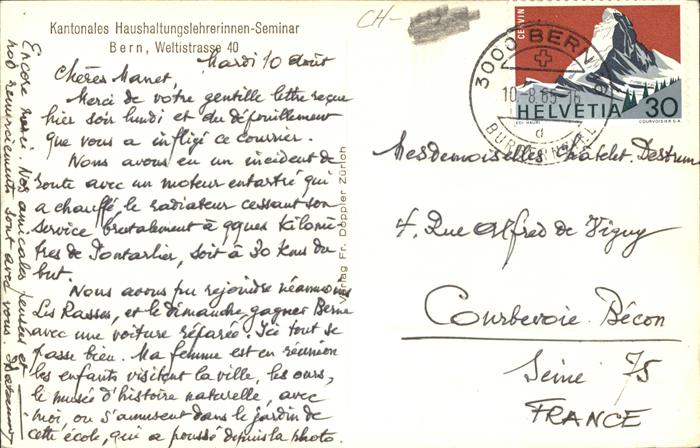 Kantonales Haushaltungslehrerinnen-Seminar
Bern, Weltistrasse 40
CH-
Mardi 10 Août
Chères Manet,
Merci de vôtre gentille lettre reçue
hier soir lundi et du dépouillement
que vous a infligé ce courrier.
Nous avons eu un incident de
route avec un moteur entartré qui
a chauffé, le radiateur cessant son
service brutalement à qques kilomè
tres de Pontarlier, soit à 30 Kms du
but.
Nous avons pu rejoindre néanmoins
Les Rasses, et le dimanche, gagner Berne
avec une voiture réparée. Ici tout se
passe bien. Ma femme est en réunion
les enfants visitent la ville, les ours,
le musée d'histoire naturelle, avec
moi, ou s'amusent dans le jardin de
cette école, qui a poussé depuis la photo.
Encore merci. Nos amicales pensées et
nos remerciements sont avec vous.
Verlag Fr. Doppler Zürich
CERVIN
HELVETIA 30
EDI HAURI
COURVOISIER S.A.
3000 BERN
10.-8.65.-16
d
Mesdemoiselles Chatelet. Destrum
4. Rue Alfred de Vigny
Courbevoie. Bécon
Seine 75
FRANCE